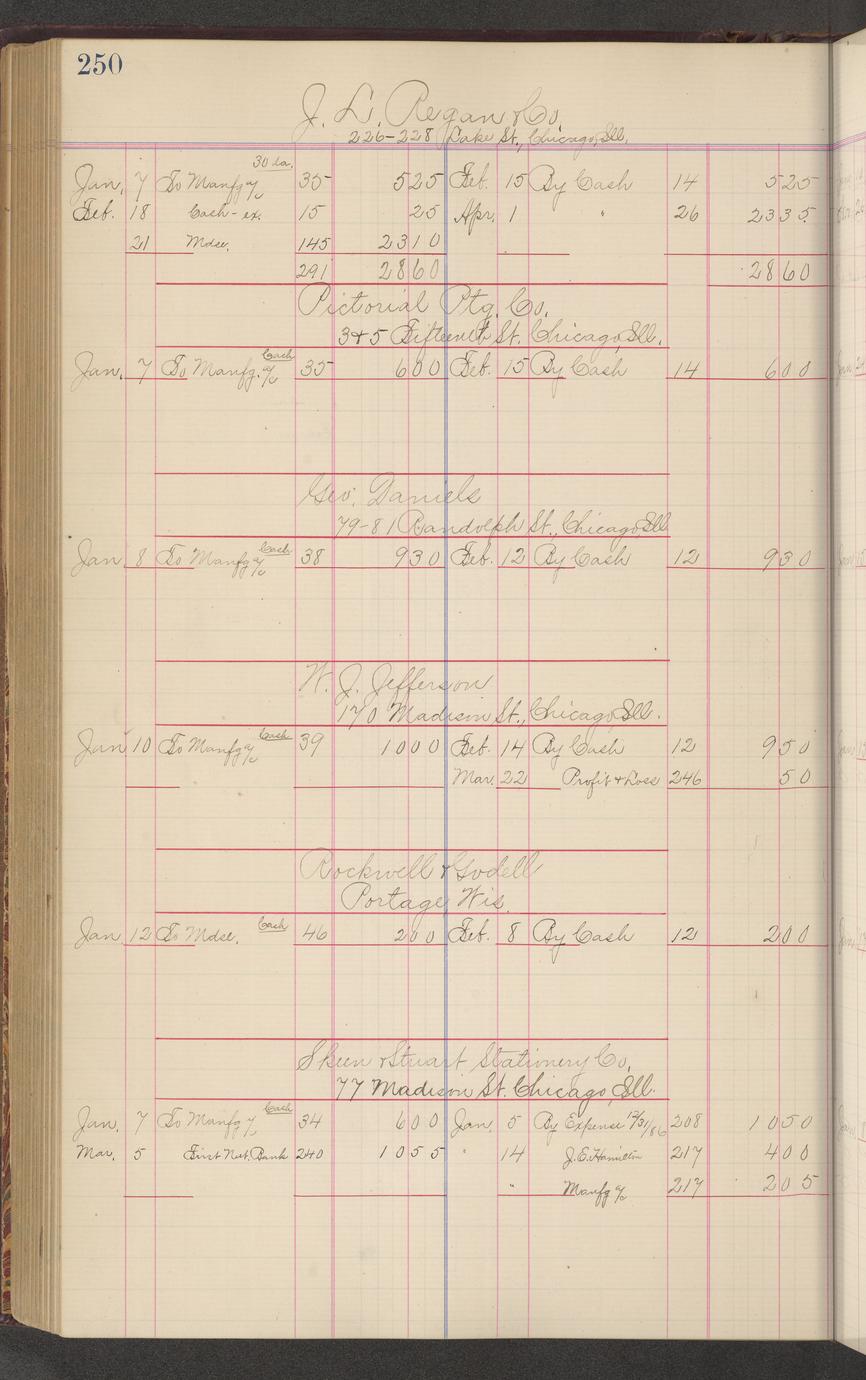 250
J. L. Regan & Co.
226-228 Lake St., Chicago, Ill.
30 da.
Jan. 7 To Manfg a/c 35 525 Feb. 15 By Cash 14 525
Feb. 18 Cash-ex. 15 25 Apr. 1 " 26 2335
21 Mdse. 145 2310
291 2860 2860
Pictorial Ptg. Co.
3 & 5 Fifteenth St. Chicago, Ill.
Jan. 7 To Manfg. a/c Cash 35 600 Feb. 15 By Cash 14 600
Geo. Daniels
79-81 Randolph St., Chicago, Ill
Jan. 8 To Manfg a/c Cash 38 930 Feb. 12 By Cash 12 930
W. J. Jefferson
170 Madison St., Chicago, Ill.
Jan 10 To Manfg a/c Cash 39 1000 Feb. 14 By Cash 12 950
Mar. 22 Profit & Loss 246 50
Rockwell & Godell
Portage Wis.
Jan 12 To Mdse. Cash 46 200 Feb. 8 By Cash 12 200
Skeen & Stuart Stationery Co.
77 Madison St. Chicago, Ill.
Jan. 7 To Manfg a/c Cash 34 600 Jan. 5 By Expense 12/31/86 208 1050
Mar. 5 First Nat. Bank 240 1055 " 14 J. E. Hamilton 217 400
" Manfg a/c 217 205